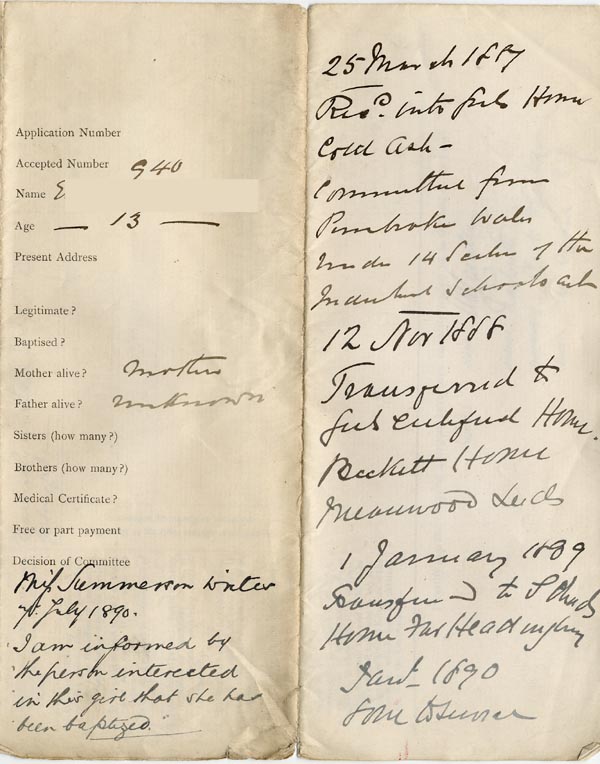 Application Number
Accepted Number 940
Name E
Age — 13 —
Present Address
Legitimate?
Baptised?
Mother alive? Mother
Father alive? unknown
Sisters (how many?)
Brothers (how many?)
Medical Certificate?
Free or part payment
Decision of Committee
Miss Summerson writes
7th July 1890.
I am informed by
the person interested
in this girl that she has
been baptized."
25 March 1887
Recd. into Girls Home
Cold Ash –
Committed from
Pembroke Wales
under 14 Section of the
Industrial Schools Act
12 Nov 1888
Transferred to
Girls Certified Home.
Beckett Home
Meanwood Leeds
1 January 1889
Transferred to S Chads
Home Far Headingley
Jany 1890
Gone to Service